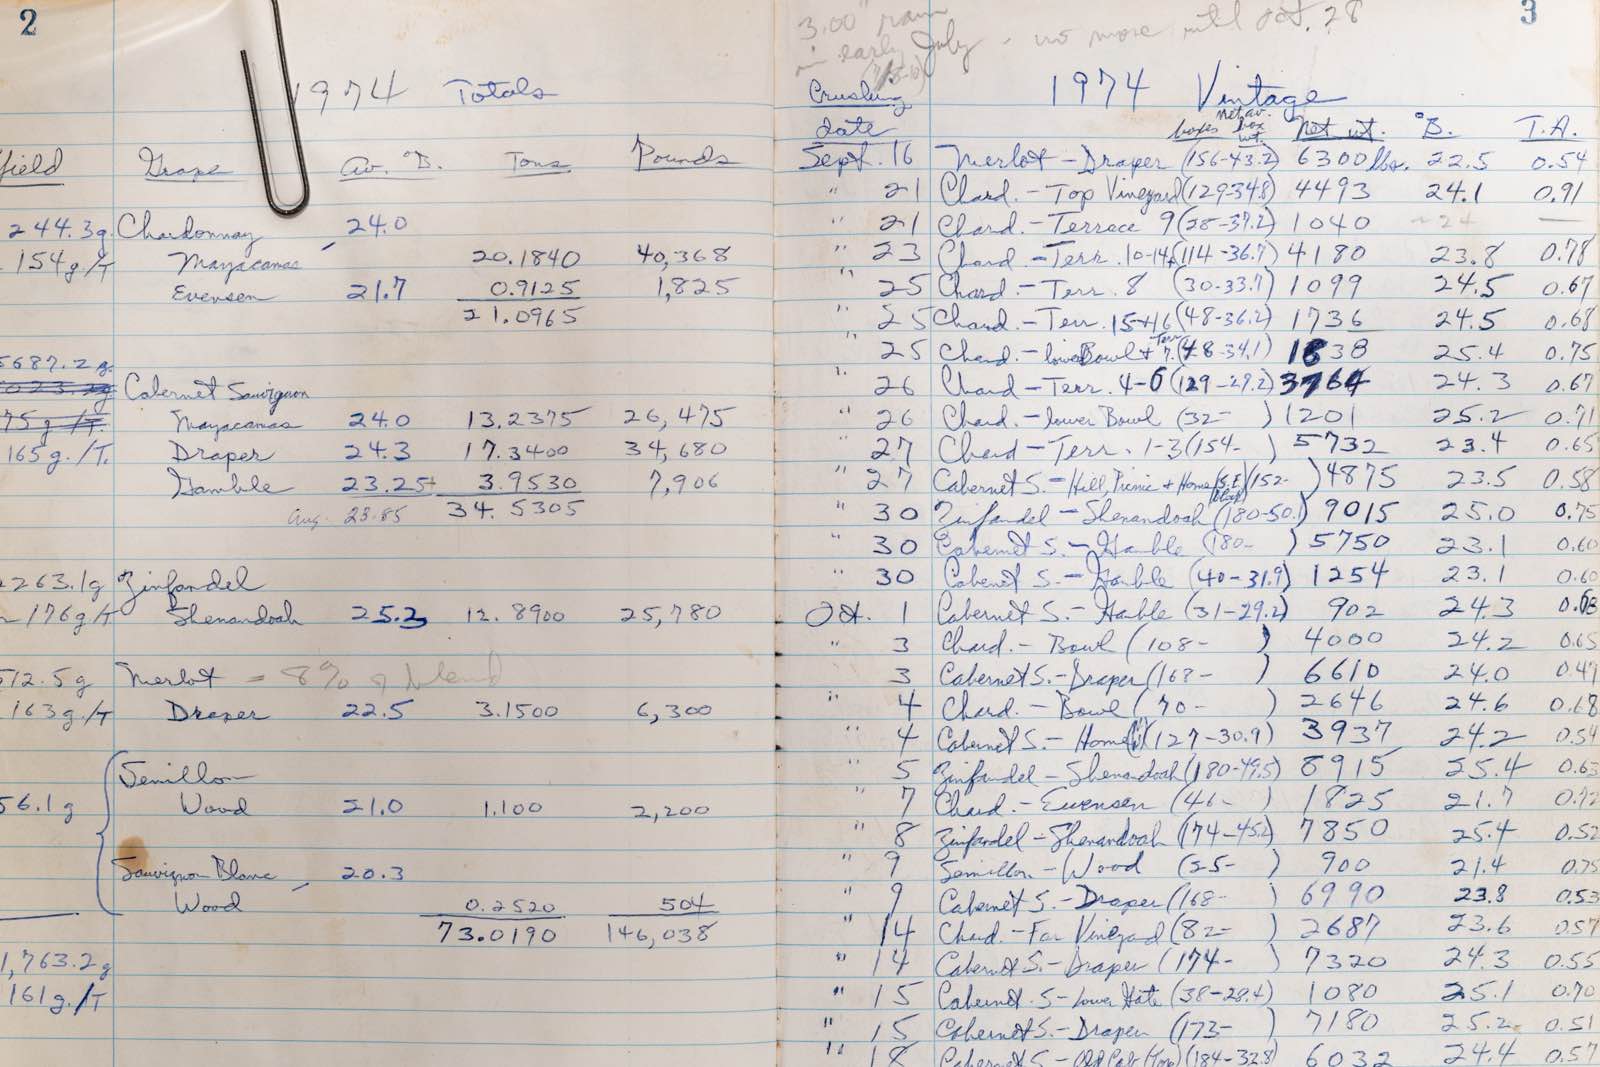 2
1974 Totals
Yield Grape Av. °B. Tons Pounds
2244.3g. Chardonnay 24.0
154g/T Mayacamas 20.1840 40,368
Evensen 21.7 0.9125 1,825
21.0965
5687.2g.
Cabernet Sauvignon
75g/T. Mayacamas 24.0 13.2375 26,475
165g./T. Draper 24.3 17.3400 34,680
Gamble 23.25+ 3.9530 7,906
avg. 23.85 34.5305
2263.1g Zinfandel
176g/T Shenandoah 25.3 12.8900 25,780
512.5g Merlot = 8% of blend
163g./T Draper 22.5 3.1500 6,300
Semillon
56.1g Wood 21.0 1.100 2,200
Sauvignon Blanc 20.3
Wood 0.2520 504
73.0190 146,038
1,763.2g
161g./T
3
3.00" rain
in early July - no more until Oct. 28
(7/8-10)
Crushing date
1974 Vintage
boxes net av. box wt. Net wt. °B. T.A.
Sept. 16 Merlot - Draper (156-43.2) 6300 lbs. 22.5 0.54
" 21 Chard. - Top Vineyard (129-34.8) 4493 24.1 0.91
" 21 Chard. - Terrace 9 (28-37.2) 1040 ~24 —
" 23 Chard. - Terr. 10-14 (114-36.7) 4180 23.8 0.78
" 25 Chard. - Terr. 8 (30-33.7) 1099 24.5 0.67
" 25 Chard. - Terr. 15+16 (48-36.2) 1736 24.5 0.68
" 25 Chard. - lower Bowl + Terr 7. (48-34.1) 1638 25.4 0.75
" 26 Chard - Terr. 4-6 (129-29.2) 3764 24.3 0.67
" 26 Chard. - lower Bowl (32- ) 1201 25.2 0.71
" 27 Chard - Terr. 1-3 (154- ) 5732 23.4 0.65
" 27 Cabernet S. - Hill, Picnic + Home (S.E. block) (152- ) 4875 23.5 0.58
" 30 Zinfandel - Shenandoah (180-50.1) 9015 25.0 0.75
" 30 Cabernet S. - Gamble (180- ) 5750 23.1 0.60
" 30 Cabernet S. - Gamble (40-31.9) 1254 23.1 0.60
Oct. 1 Cabernet S. - Gamble (31-29.2) 902 24.3 0.63
" 3 Chard. - Bowl (108- ) 4000 24.2 0.65
3 Cabernet S. - Draper (168- ) 6610 24.0 0.49
" 4 Chard. - Bowl (70- ) 2646 24.6 0.68
" 4 Cabernet S. - Home (127-30.9) 3937 24.2 0.54
" 5 Zinfandel - Shenandoah (180-49.5) 8915 25.4 0.63
" 7 Chard. - Evensen (46- ) 1825 21.7 0.72
" 8 Zinfandel - Shenandoah (174-45.2) 7850 25.4 0.52
" 9 Semillon - Wood (25- ) 900 21.4 0.75
" 9 Cabernet S. - Draper (168- ) 6990 23.8 0.53
" 14 Chard. - Far Vineyard (82- ) 2687 23.6 0.57
" 14 Cabernet S. - Draper (174- ) 7320 24.3 0.55
" 15 Cabernet. S - Lower Gate (38-28.4) 1080 25.1 0.70
" 15 Cabernet S. - Draper (173- ) 7180 25.2 0.51
" 18 Cabernet S. - Old Cab (Top) (184-32.8) 6032 24.4 0.57